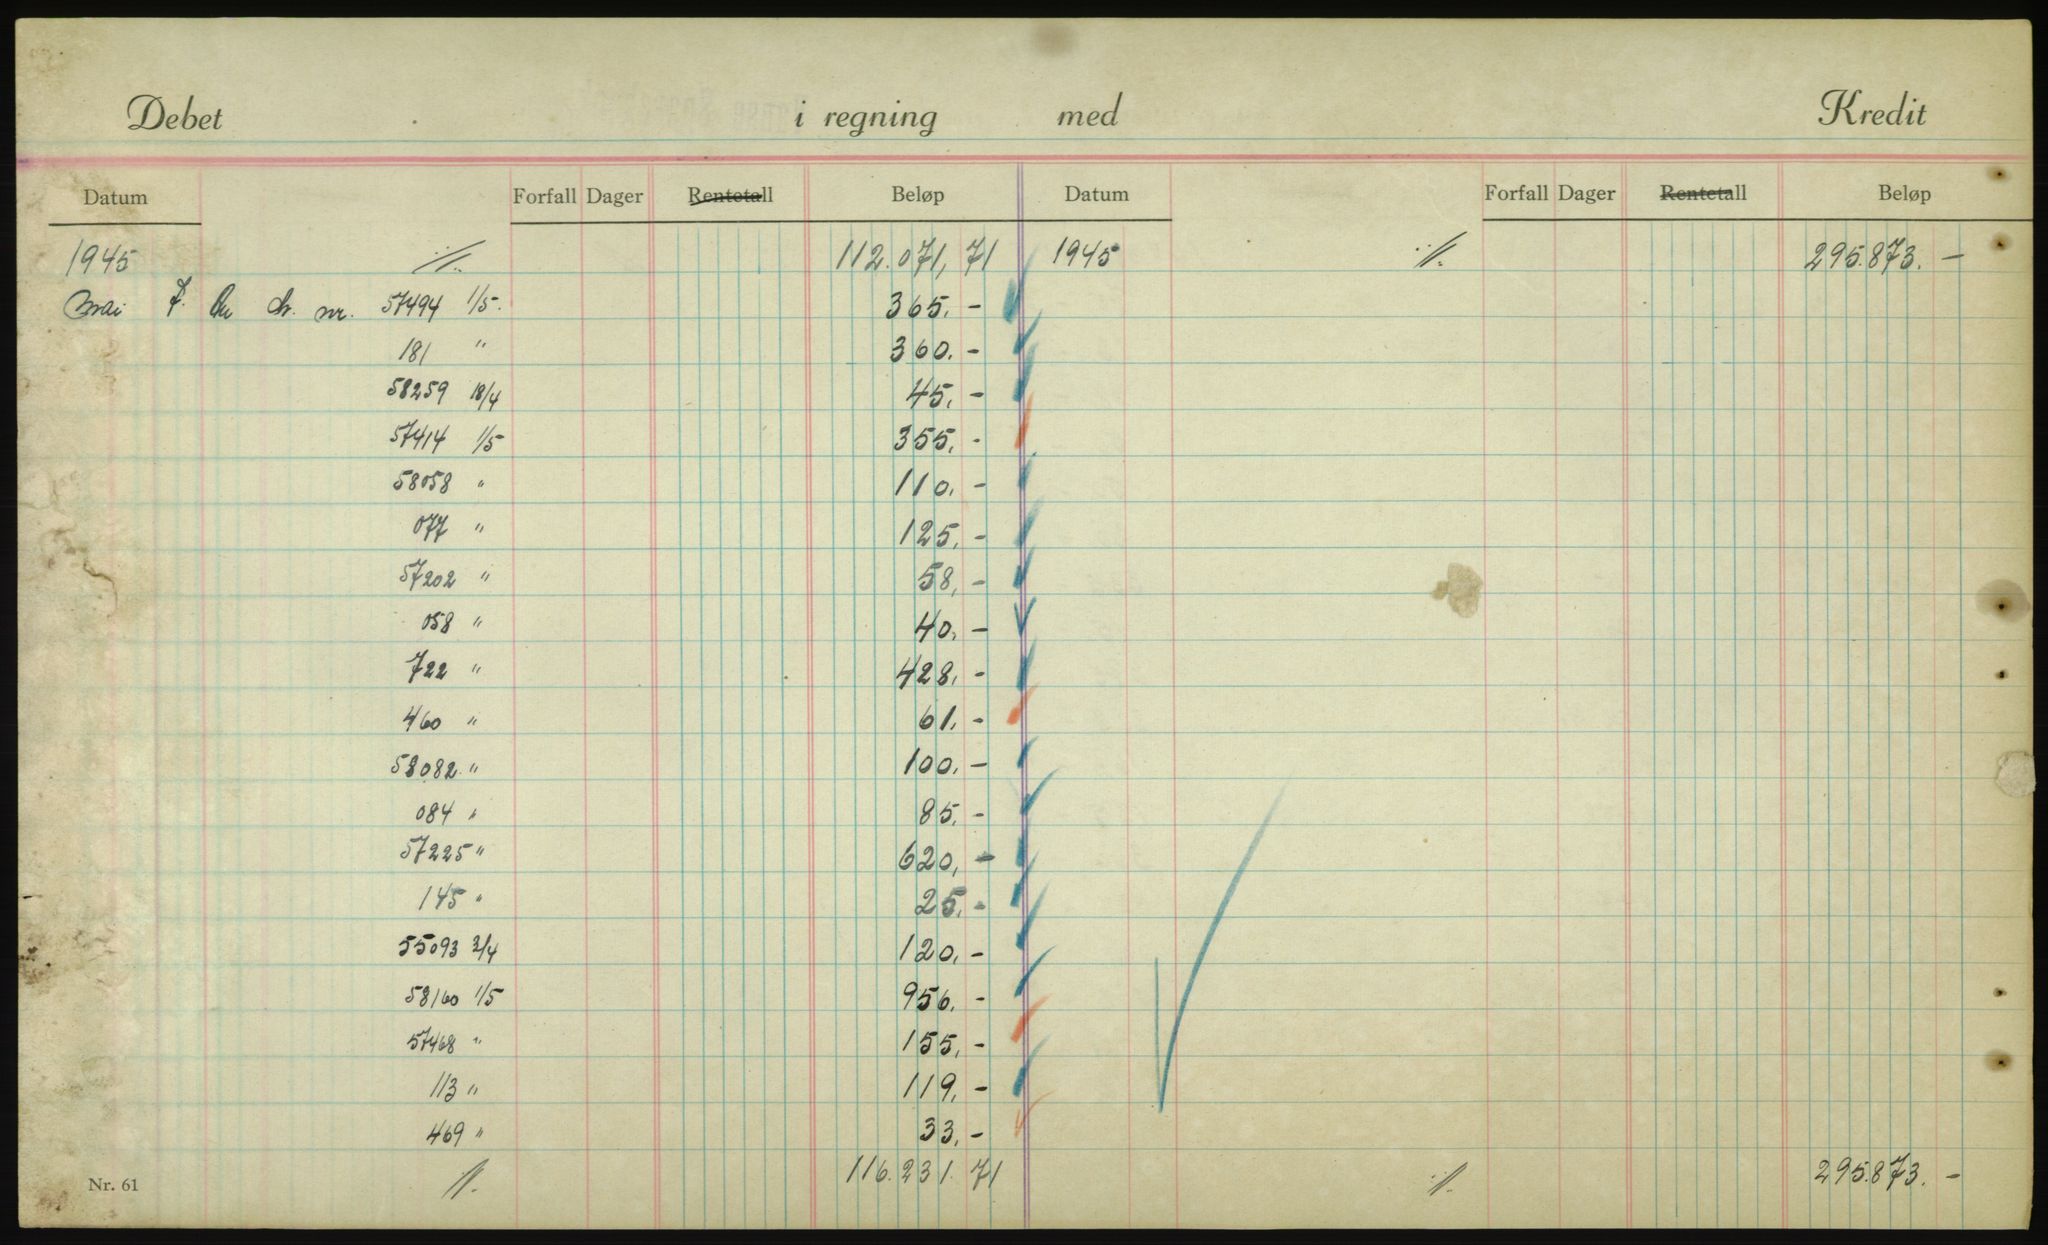 Debet i regning med Kredit
Datum Forfall Dager Rentetall Beløp Datum Forfall Dager Rentetall Beløp
1945 //. 112.071,71 1945 //. 295.873.-
Mai 7. nr. 57494 1/5. 365.-
181 " 360.-
58259 18/4 45.-
57414 1/5 355.-
58058 " 110.-
077 " 125.-
57202 " 58.-
058 " 40.-
722 " 428.-
460 " 61.-
58082 " 100.-
084 " 85.-
57225 " 620,-
145 " 25.-
55093 3/4 120.-
58160 1/5 956.-
57468 " 155.-
113 " 119.-
469 " 33.-
Nr. 61 //. 116.231.71 //. 295.873.-